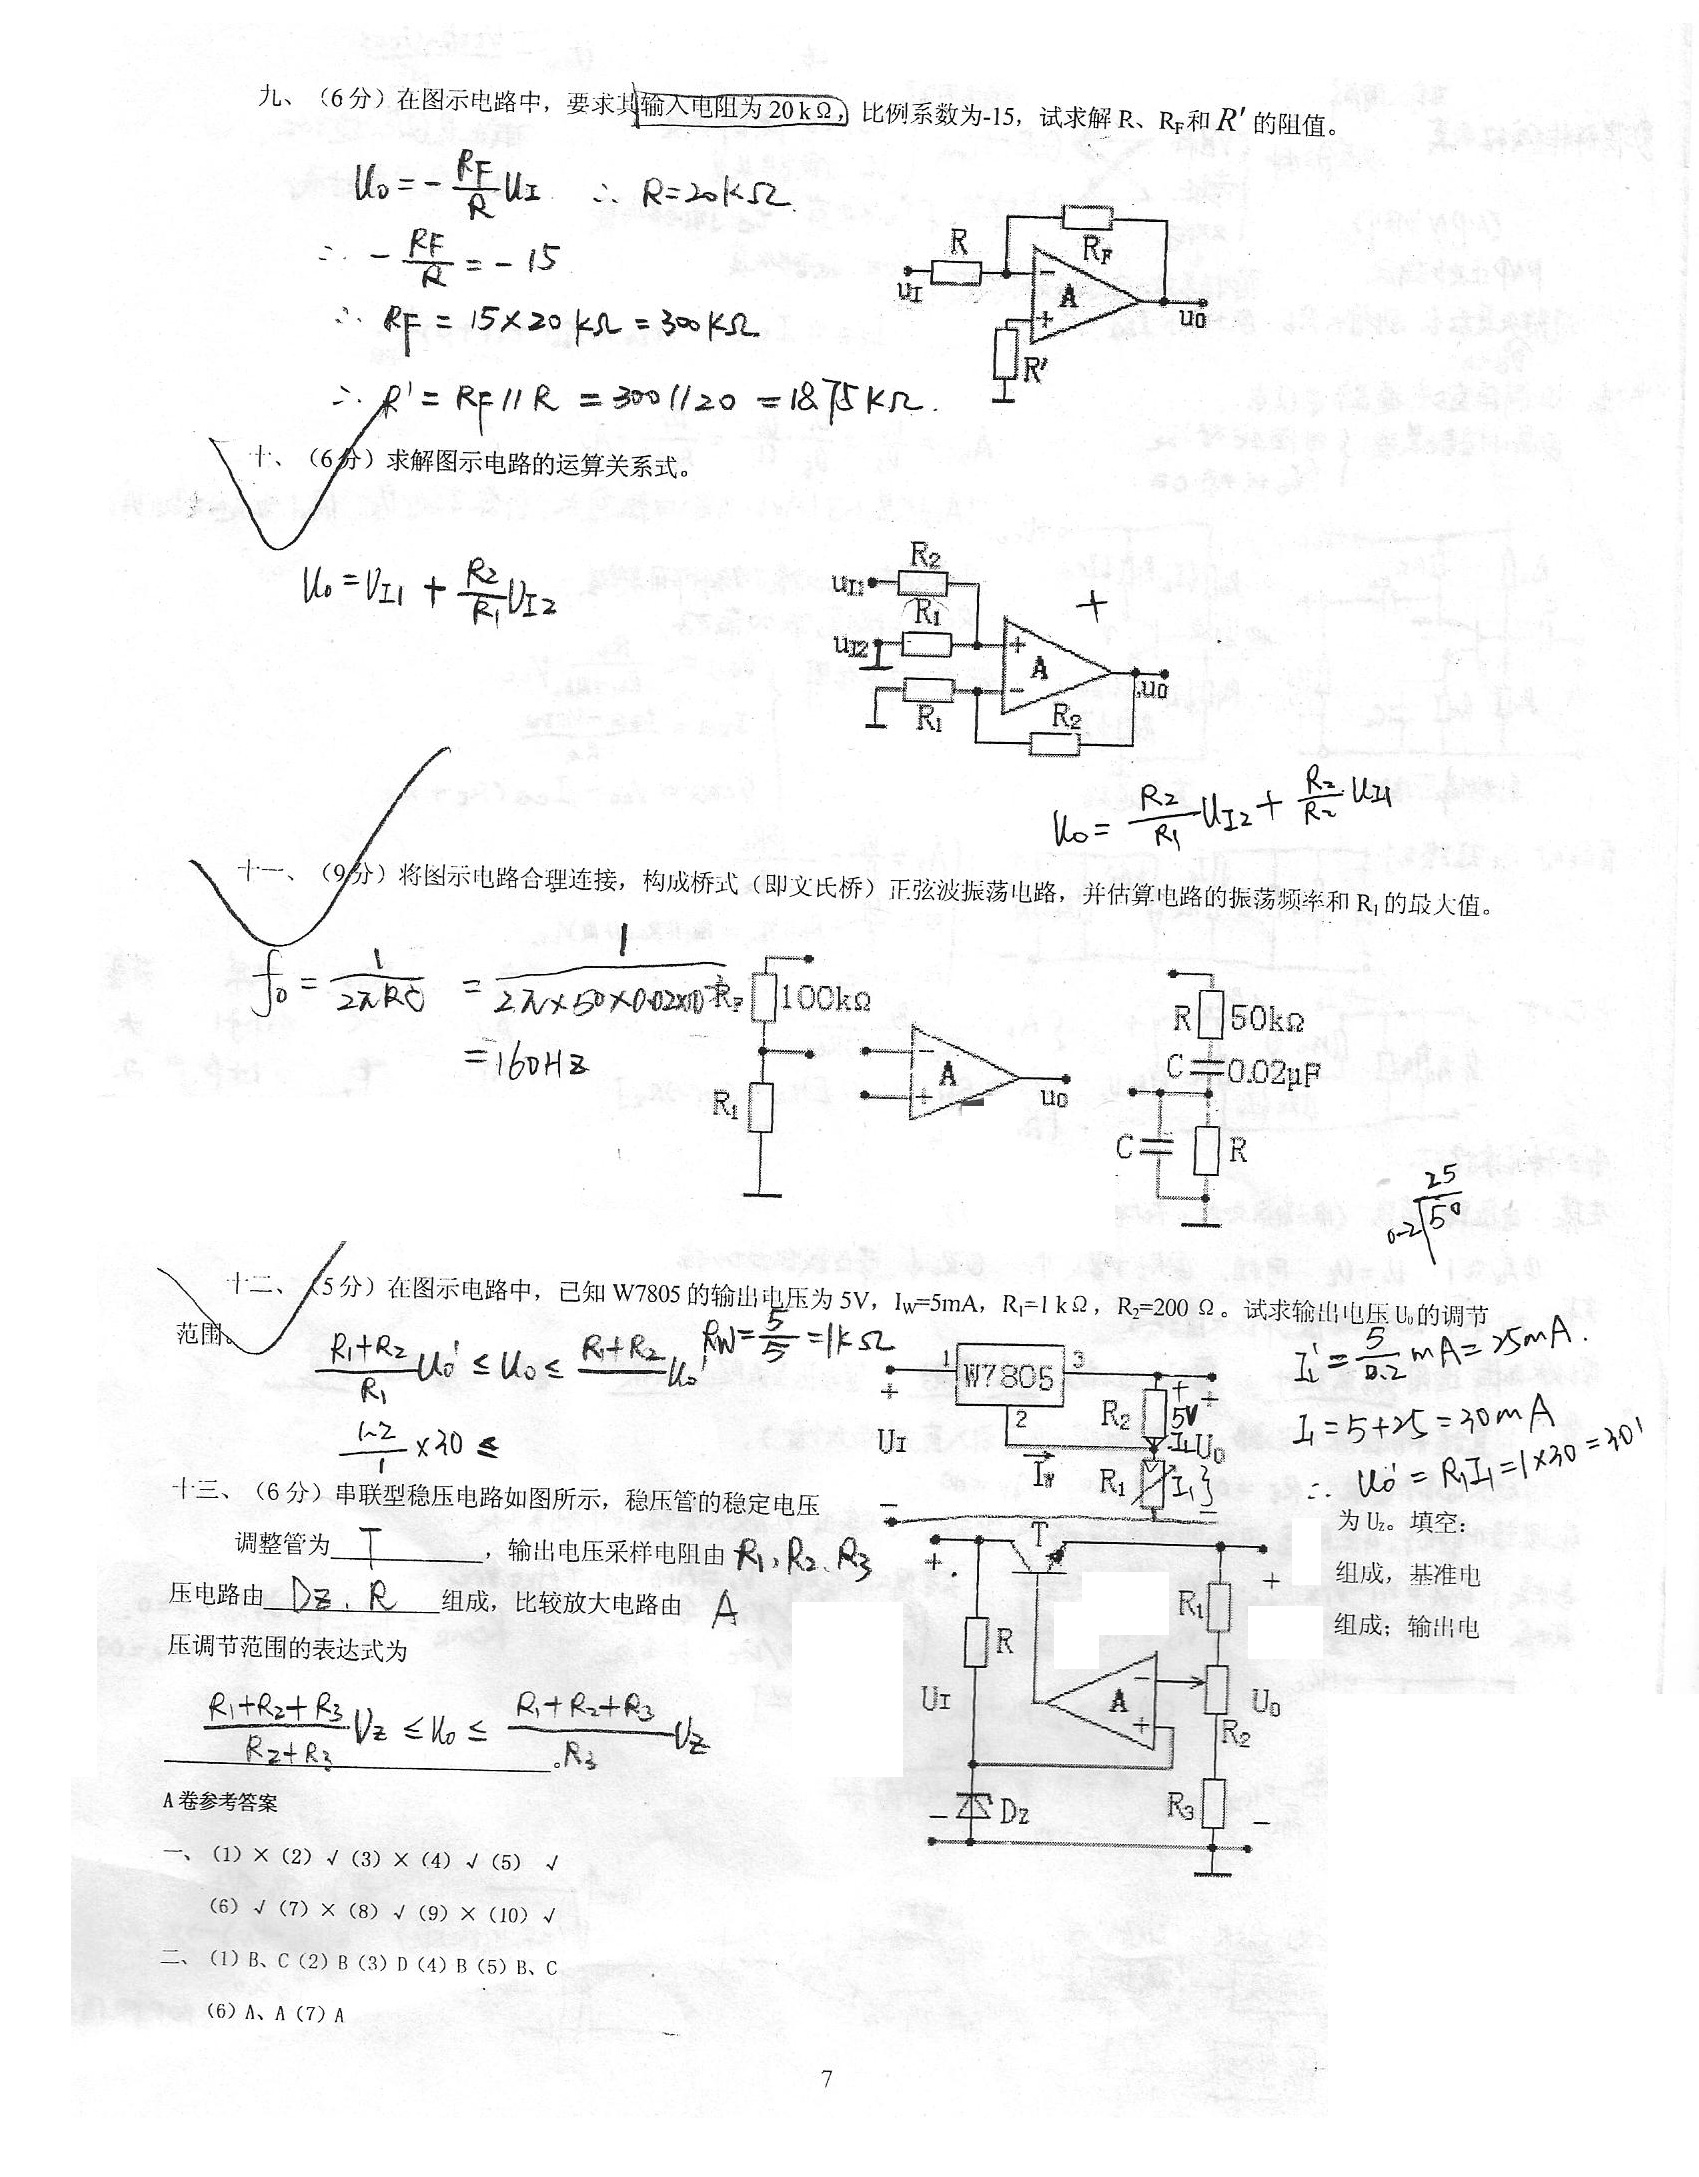 九、（6分）在图示电路中，要求其输入电阻为 20 k Ω，比例系数为-15，试求解 R、RF和 R′ 的阻值。
U0 = - RF/R UI ∴ R=20kΩ.
∴ - RF/R = - 15
∴ RF = 15×20 kΩ = 300kΩ
∴ R' = RF // R = 300 // 20 = 18.75kΩ.
R
RF
uI
A
u0
R'
十、（6分）求解图示电路的运算关系式。
U0 = UI1 + R2/R1 UI2
R2
uI1
R1
uI2
A
u0
R1
R2
U0 = R2/R1 UI2 + R2/R2 UI1
十一、（9分）将图示电路合理连接，构成桥式（即文氏桥）正弦波振荡电路，并估算电路的振荡频率和 R1 的最大值。
f0 = 1/2πRC = 1/2π×50×0.02×10
=160HZ
RF 100kΩ
R 50kΩ
C 0.02μF
A
u0
R1
C R
25
0.2 50
十二、（5分）在图示电路中，已知 W7805 的输出电压为 5V，IW=5mA，R1=1 k Ω，R2=200 Ω。试求输出电压 U0 的调节
范围。
R1+R2/R1 U0' ≤ U0 ≤ R1+R2/ U0'
RW = 5/5 = 1kΩ
1.2/1 ×30 ≤
1 W7805 3
2
R2 5V
UI
IW
R1 I1
U0
I1' = 5/0.2 mA = 25mA.
I1 = 5+25 = 30mA
∴ U0' = R1I1 = 1×30 = 30
十三、（6 分）串联型稳压电路如图所示，稳压管的稳定电压为 UZ。填空：
调整管为 T ，输出电压采样电阻由 R1、R2、R3 组成，基准电
压电路由 DZ、R 组成，比较放大电路由 A 组成；输出电
压调节范围的表达式为
R1+R2+R3/R2+R3 UZ ≤ U0 ≤ R1+R2+R3/R3 UZ
T
R1
R
UI
A
U0
R2
DZ
R3
A 卷参考答案
一、（1）×（2）√（3）×（4）√（5） √
（6）√（7）×（8）√（9）×（10）√
二、（1）B、C（2）B（3）D（4）B（5）B、C
（6）A、A（7）A
7